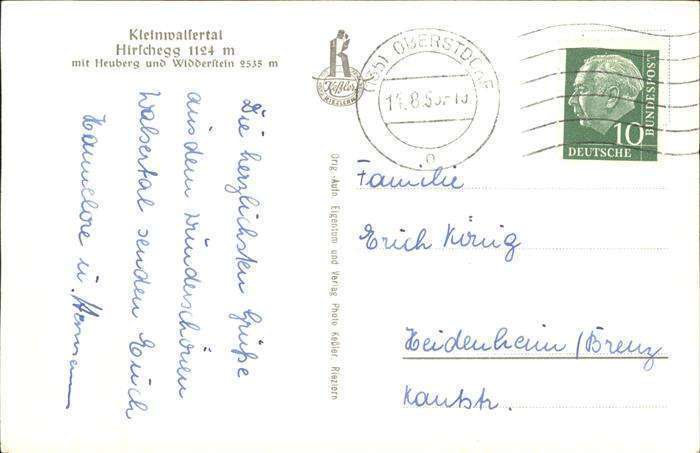 Kleinwalsertal
Hirschegg 1124 m
mit Heuberg und Widderstein 2535 m
Die herzlichsten Grüße
aus dem wunderschönen
Walsertal senden Euch
Hannelore u. Hermann
Orig.-Aufn. Eigentum und Verlag Photo Keßler, Riezlern
Keßler
RIEZLERN
OBERSTDORF
DEUTSCHE
BUNDESPOST
10
Familie
Erich König
Heidenheim/Brenz
Kantstr.